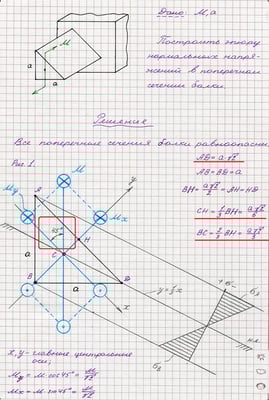 Дано: M, a
M
a
a
Построить эпюру
нормальных напря-
жений в поперечном
сечении балки.
Решение
Все поперечные сечения балки равноопасны
Рис. 1.
M
y
My
Mx
A
45°
H
C
a
B
a
D
x
AD = a√2
AB = BD = a
BH = a√2/2 = AH = HD
CH = 1/3 BH = a√2/6
BC = 2/3 BH = a√2/3
+σ-
н.л.
x, y - главные центральные
оси;
My = M cos 45° = M/√2
Mx = M sin 45° = M/√2